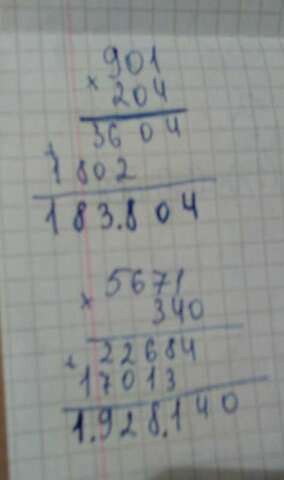 901
× 204
3604
+ 1802
183.804
5671
× 340
22684
+ 17013
1.928.140